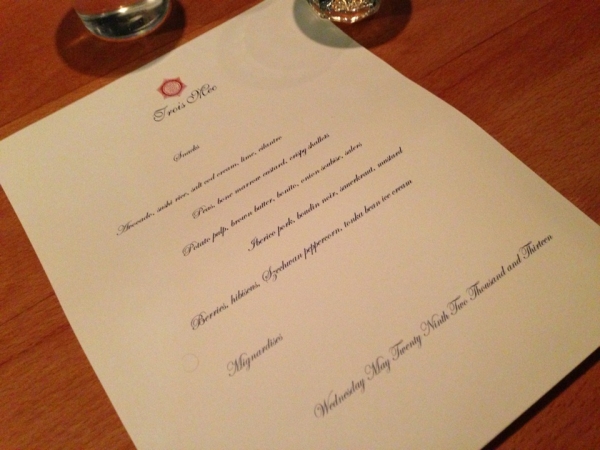 Trois Mec
Snacks
Avocado, sushi rice, salt cod cream, lime, cilantro
Peas, bone marrow custard, crispy shallots
Potato pulp, brown butter, bonito, onion soubise, salers
Iberico pork, boudin noir, sauerkraut, mustard
Berries, hibiscus, Szechwan peppercorn, tonka bean ice cream
Mignardises
Wednesday May Twenty Ninth Two Thousand and Thirteen